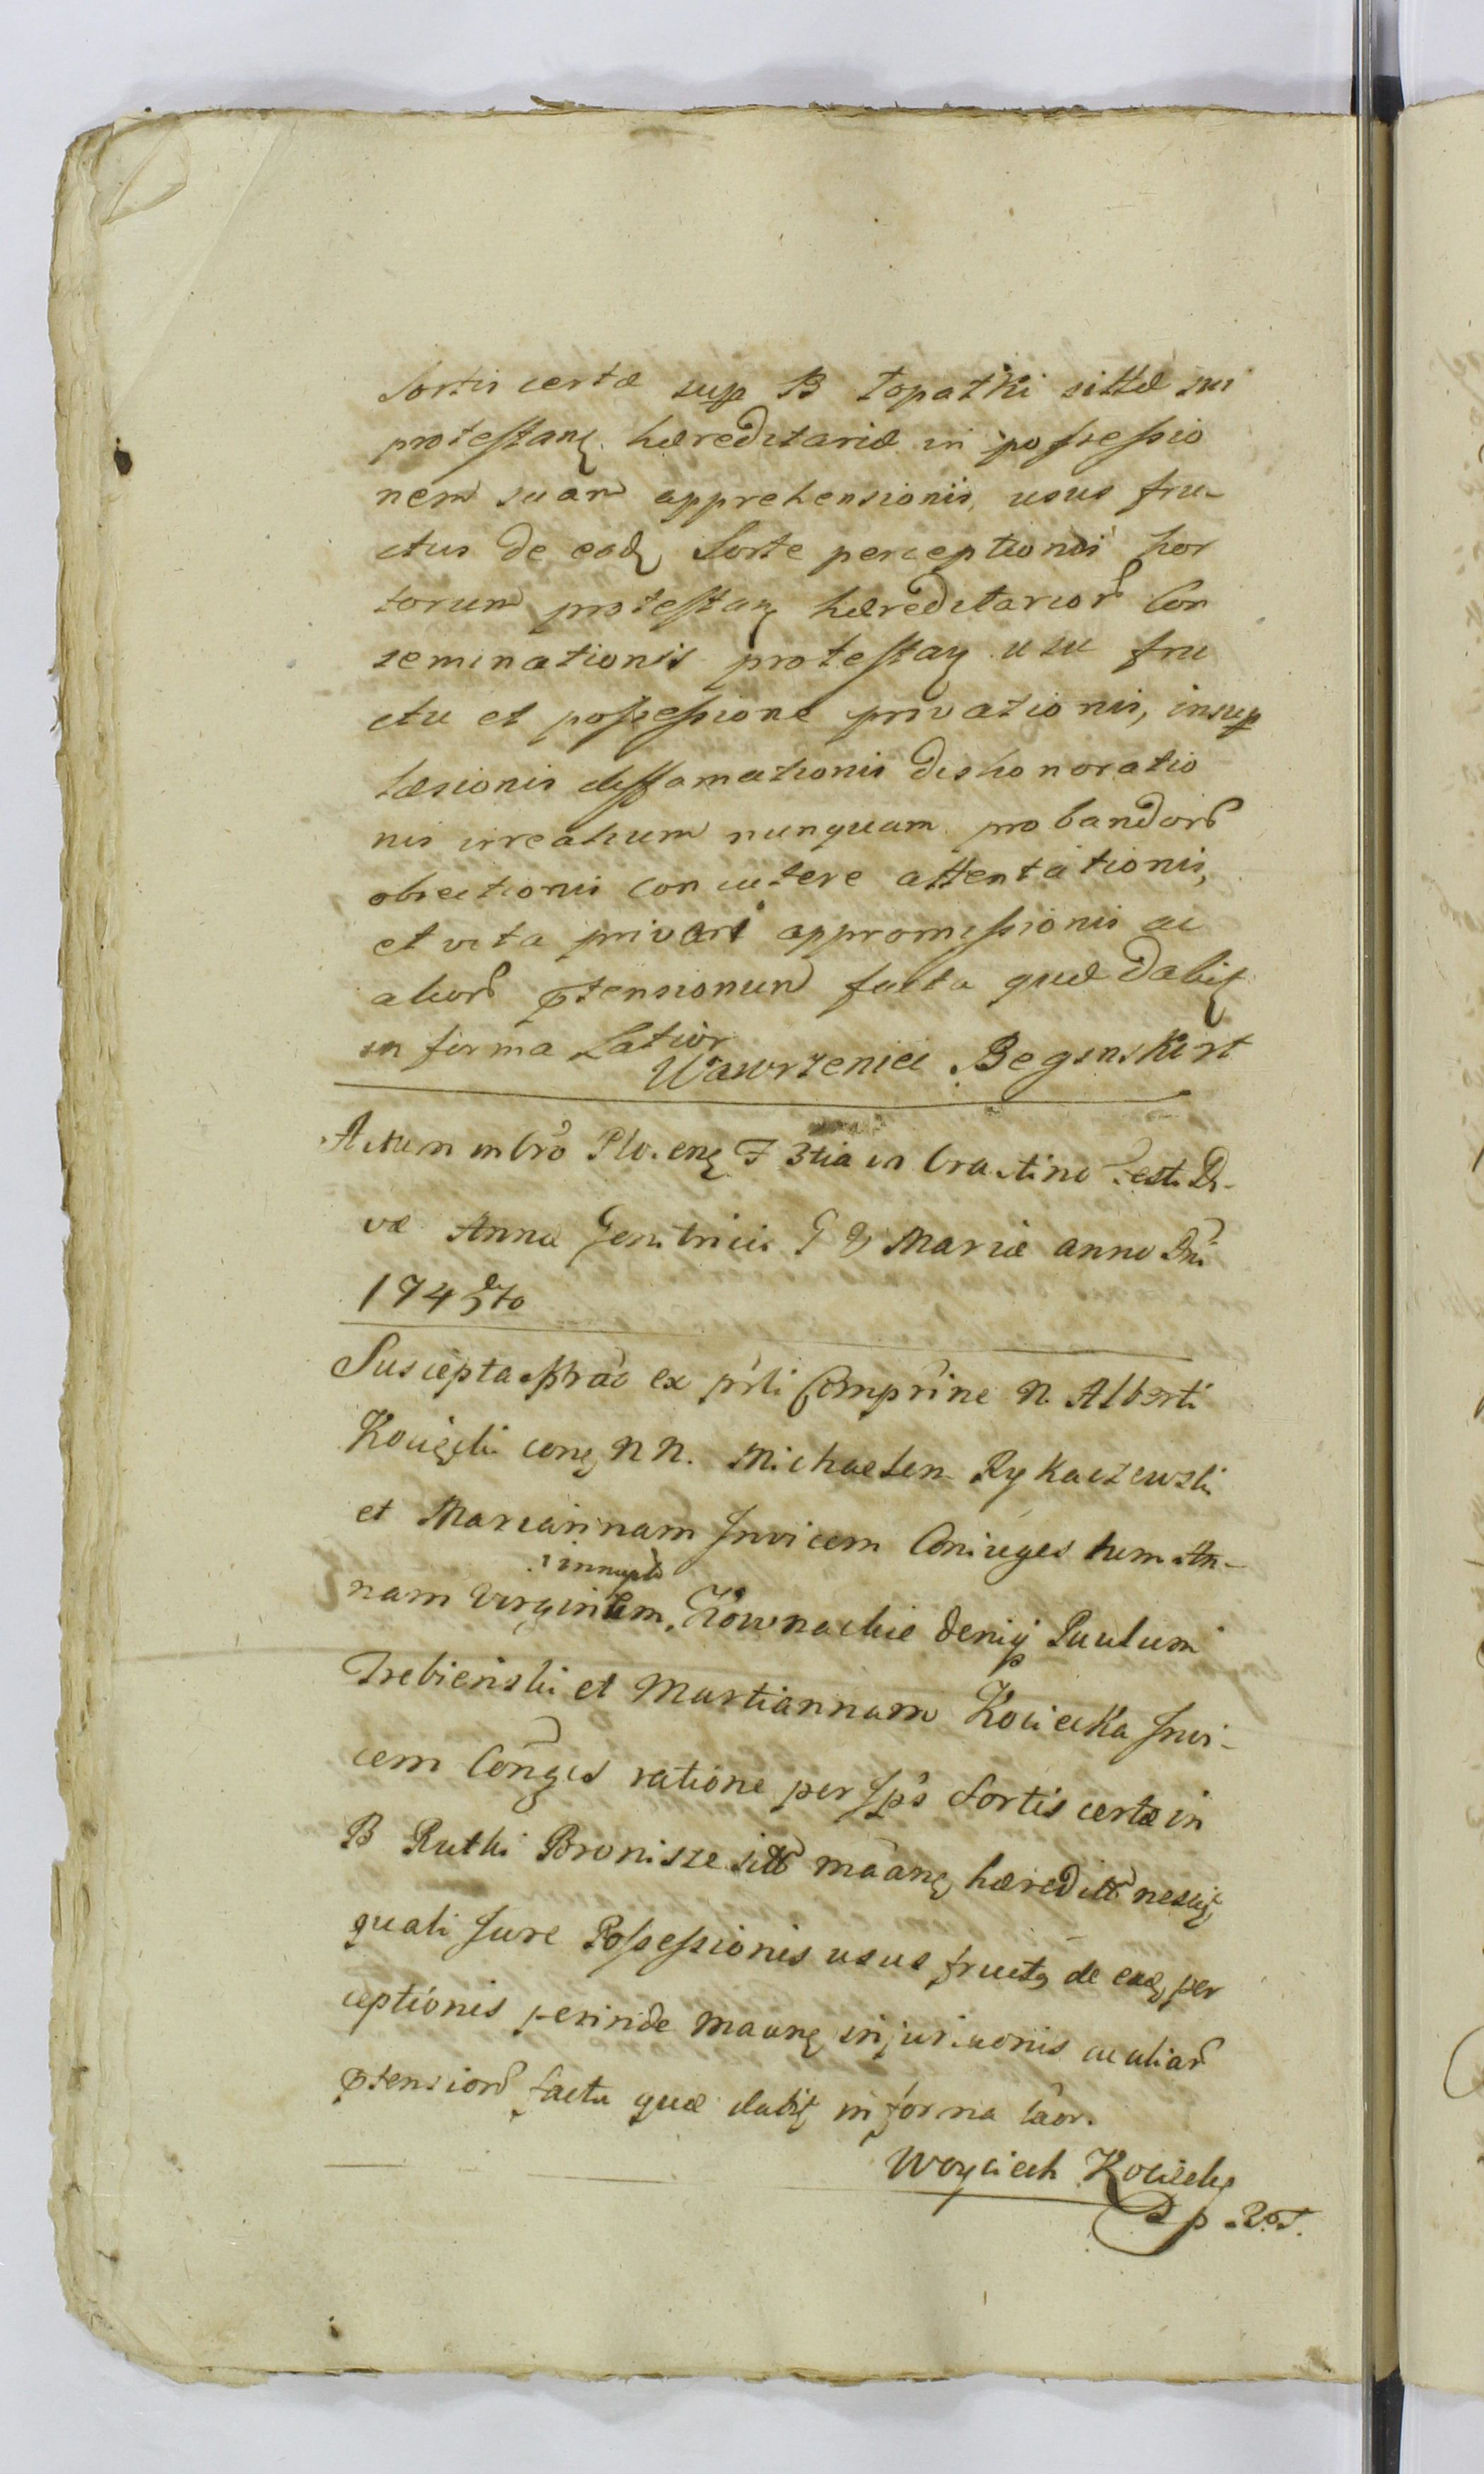 Sortis certæ sup B Łopatki sittæ sui
protestanς hæreditariæ in possessio
nem suam apprehensionis, usus fru-
ctus de eadς Sorte perceptionis hor
torum protestanς hæreditarior Con
seminationis protestanς usu fru
ctu et possessione privationis, insup
læsionis diffamationis dishonoratio
nis irreatuum nunquam probandor
obiectionis concutere attentationis,
et vita privari appromissionis ac
alior ptensionum facta quæ dabitς
in forma Latior
Wawrzeniec Beginski rt
Actum in Cro Plo. enς F 3tia in Crastino Festi Di-
væ Annæ Genitricis G V Mariæ anno Dni
1745to
Suscepta pttao ex prsti Comprine N. Alberti
Kocięcki conς NN. Michaelem Rykaczewski
et Mariannam Invicem Coniuges tum An-
innupta
nam Virginem, Kownackie deniqς Paulum
Trebienski et Martiannam Kociecka Invi-
cem Conges ratione per Ipos Sortis certæ in
B Rutki Bronisze sittæ maanς hæreditt nescitς
quali Jure Possessionis usus fructς de eadς per
ceptionis perinde maanς injuriaonis ac aliar
ptensior facta quæ dabitς in forma laor.
Woyciech Kociecky